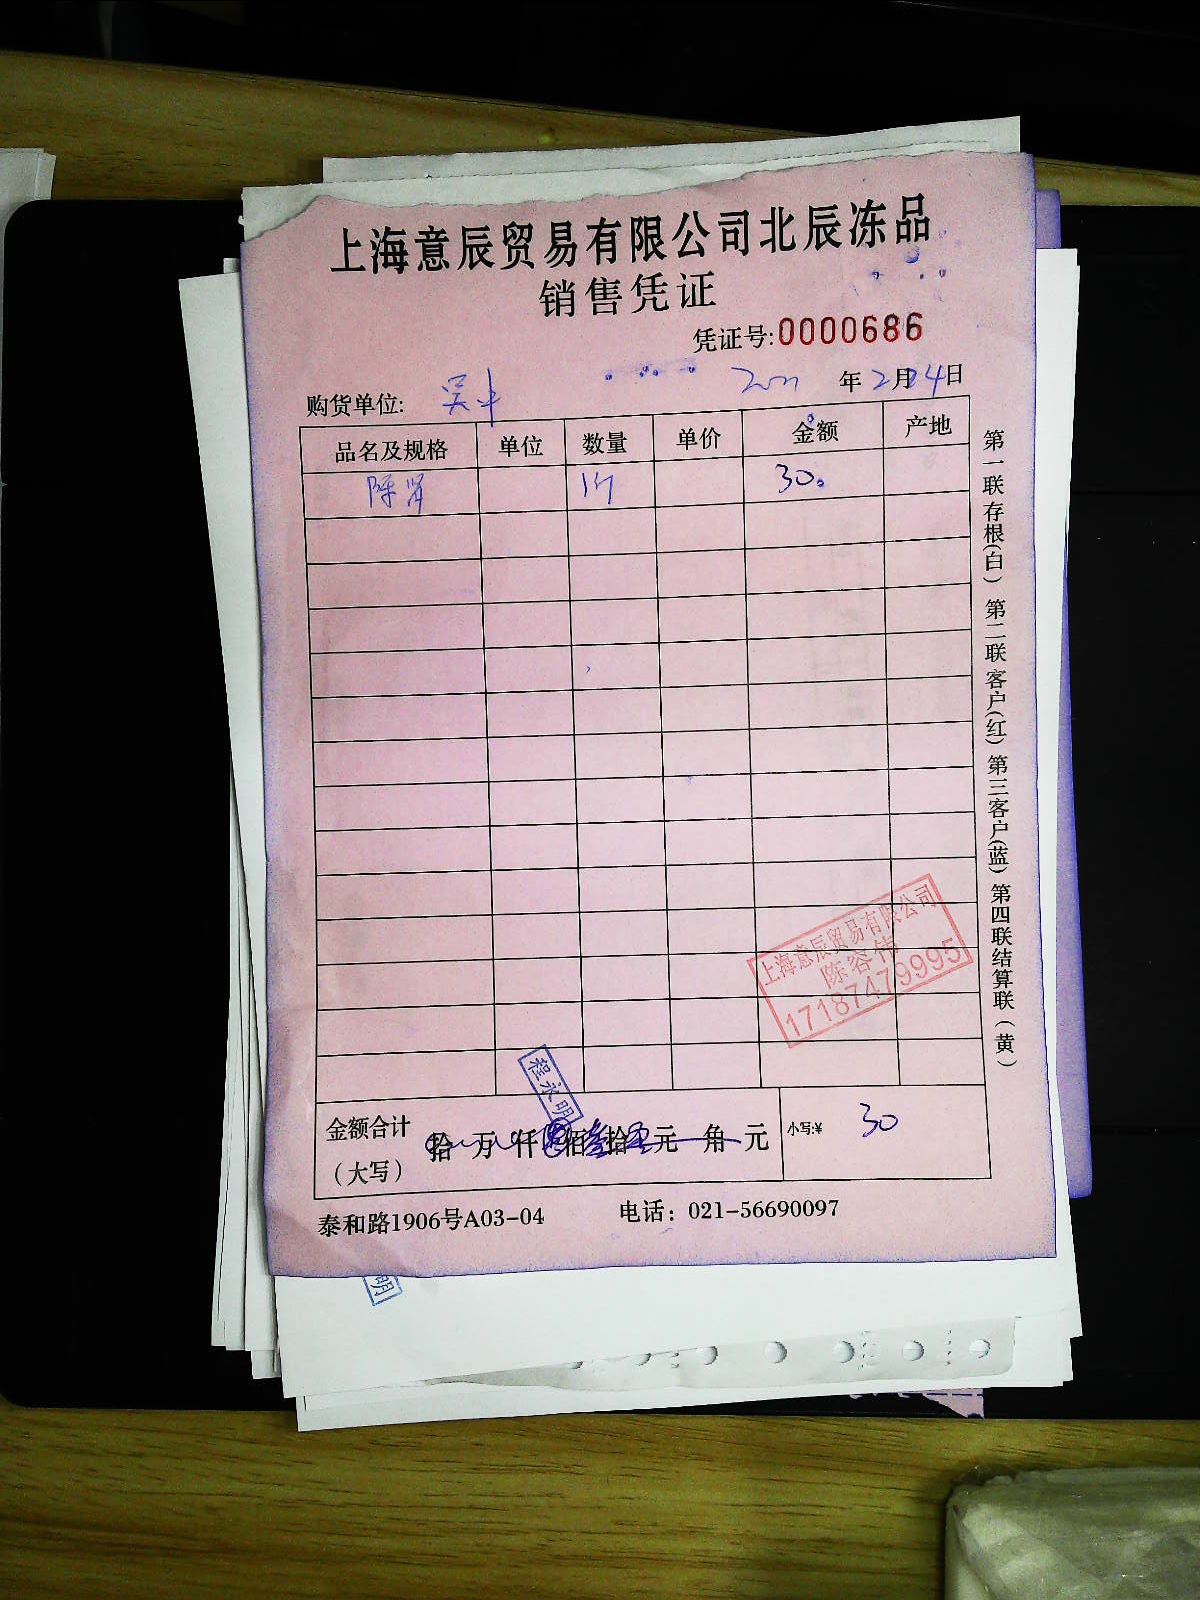 上海意辰贸易有限公司北辰冻品
销售凭证
凭证号:0000686
购货单位: 年2月4日
品名及规格 单位 数量 单价 金额 产地
陈 30。
上海意辰贸易有限公司
陈容伟
17187479995
程永明
金额合计
(大写)
拾 万 仟 佰叁拾 元 角 元
小写:¥ 30
泰和路1906号A03-04 电话：021-56690097
第一联存根(白) 第二联客户(红) 第三客户(蓝) 第四联结算联(黄)
明